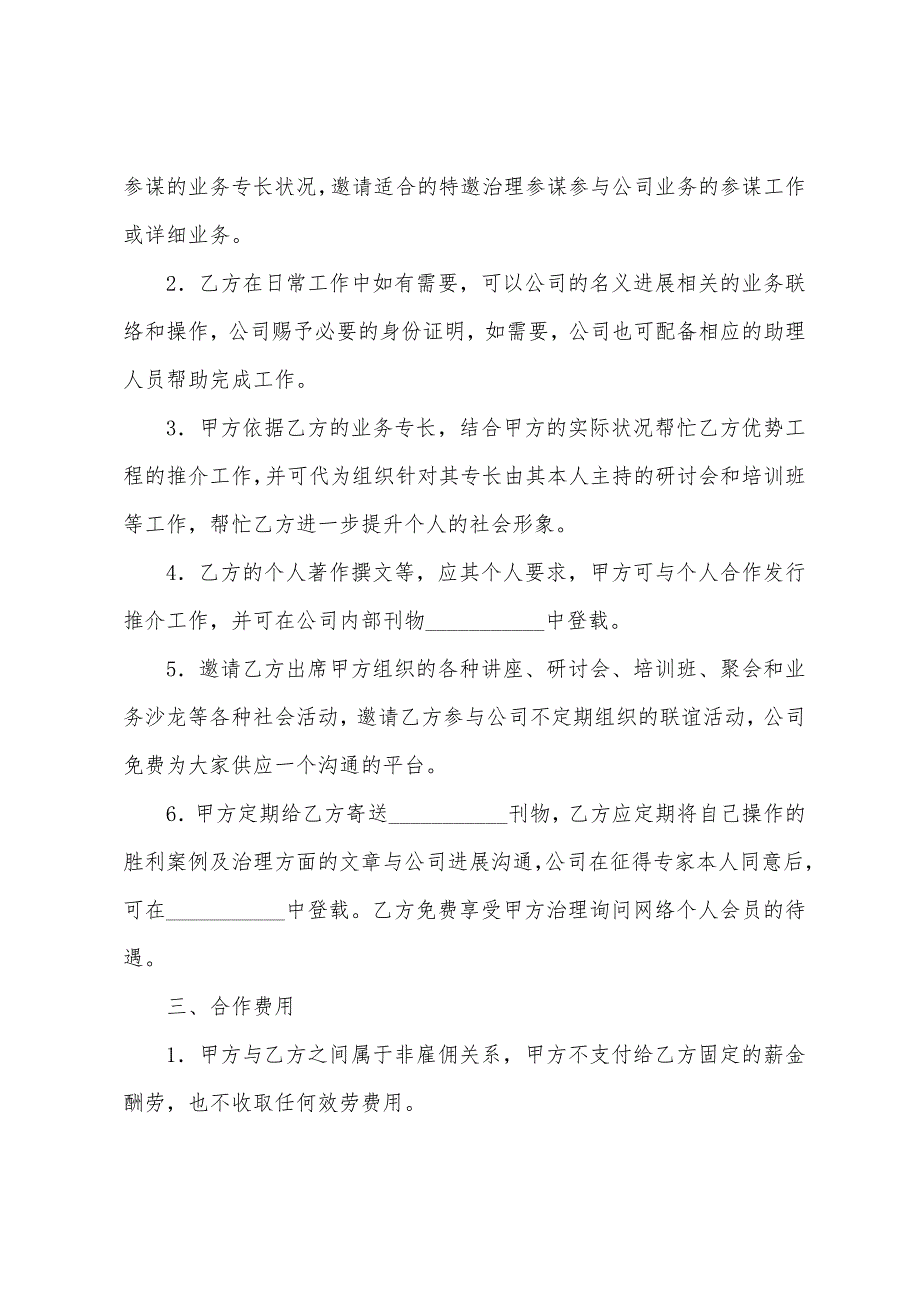 参谋的业务专长状况，邀请适合的特邀治理参谋参与公司业务的参谋工作
或详细业务。
2．乙方在日常工作中如有需要，可以公司的名义进展相关的业务联
络和操作，公司赐予必要的身份证明，如需要，公司也可配备相应的助理
人员帮助完成工作。
3．甲方依据乙方的业务专长，结合甲方的实际状况帮忙乙方优势工
程的推介工作，并可代为组织针对其专长由其本人主持的研讨会和培训班
等工作，帮忙乙方进一步提升个人的社会形象。
4．乙方的个人著作撰文等，应其个人要求，甲方可与个人合作发行
推介工作，并可在公司内部刊物___________中登载。
5．邀请乙方出席甲方组织的各种讲座、研讨会、培训班、聚会和业
务沙龙等各种社会活动，邀请乙方参与公司不定期组织的联谊活动，公司
免费为大家供应一个沟通的平台。
6．甲方定期给乙方寄送___________刊物，乙方应定期将自己操作的
胜利案例及治理方面的文章与公司进展沟通，公司在征得专家本人同意后，
可在___________中登载。乙方免费享受甲方治理询问网络个人会员的待
遇。
三、合作费用
1．甲方与乙方之间属于非雇佣关系，甲方不支付给乙方固定的薪金
酬劳，也不收取任何效劳费用。